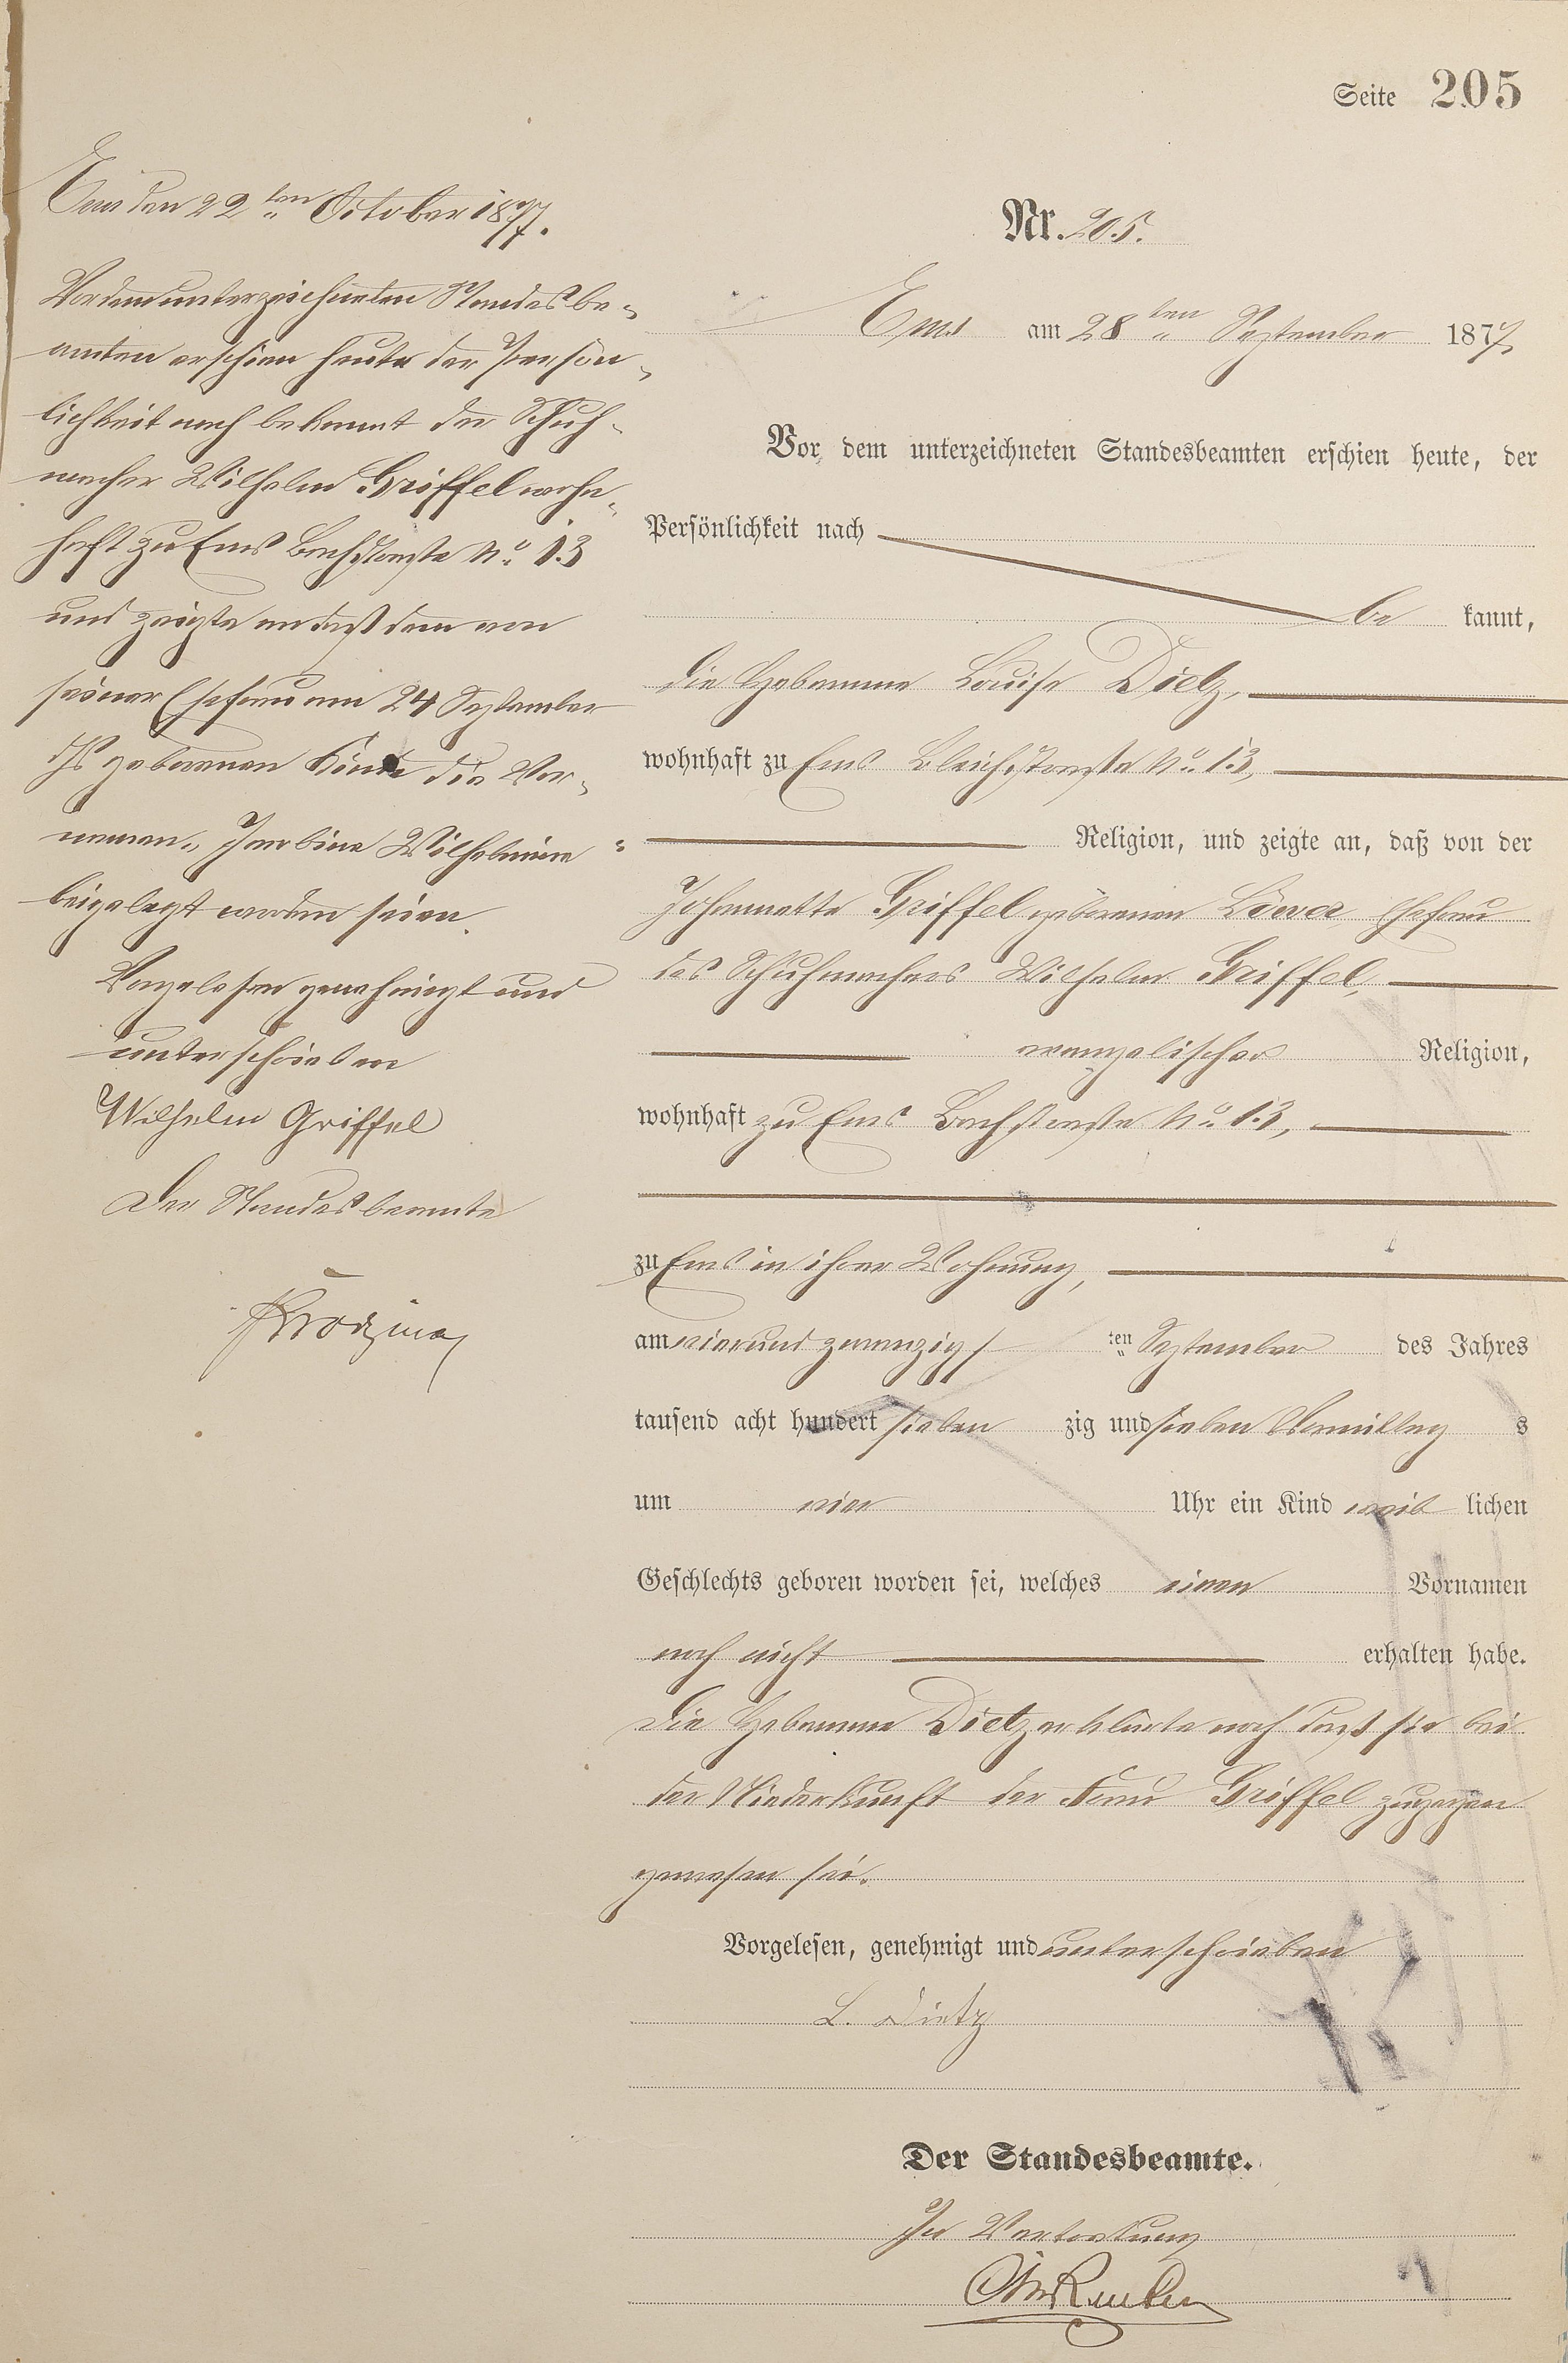 Seite 205
Ems den 22ten October 1877.
Vor dem unterzeichneten Standesbe-
amten erschien heute der Persön-
lichkeit nach bekannt der Schuh-
macher Wilhelm Griffel wohn-
haft zu Ems Bachstraße No. 13
und zeigte an daß dem von
seiner Ehefrau am 24 September
ds geborenen Kinde die Vor-
namen Wilhelmine
beigelegt worden seien.
Vorgelesen genehmigt und
unterschrieben
Wilhelm Griffel
Der Standesbeamte
Nr. 205.
Ems am 28ten September 1877.
Vor dem unterzeichneten Standesbeamten erschien heute, der
Persönlichkeit nach
be kannt,
die Hebamme Louise Dietz,
wohnhaft zu Ems Bleichstraße No. 13,
Religion, und zeigte an, daß von der
Johannette Griffel geborenen Ehefrau
des Schuhmachers Wilhelm Griffel,
evangelischer Religion,
wohnhaft zu Ems Bachstraße No. 13,
zu Ems in ihrer Wohnung,
am vierundzwanzig ten September des Jahres
tausend acht hundert sieben zig und sieben Vormittag s
um vier Uhr ein Kind weib lichen
Geschlechts geboren worden sei, welches einen Vornamen
noch nicht erhalten habe.
Die Hebamme Dietz erklärte noch daß sie bei
der Niederkunft der Frau Griffel zugegen
gewesen sei.
Vorgelesen, genehmigt und unterschrieben
L. Dietz
Der Standesbeamte.
In Vertretung